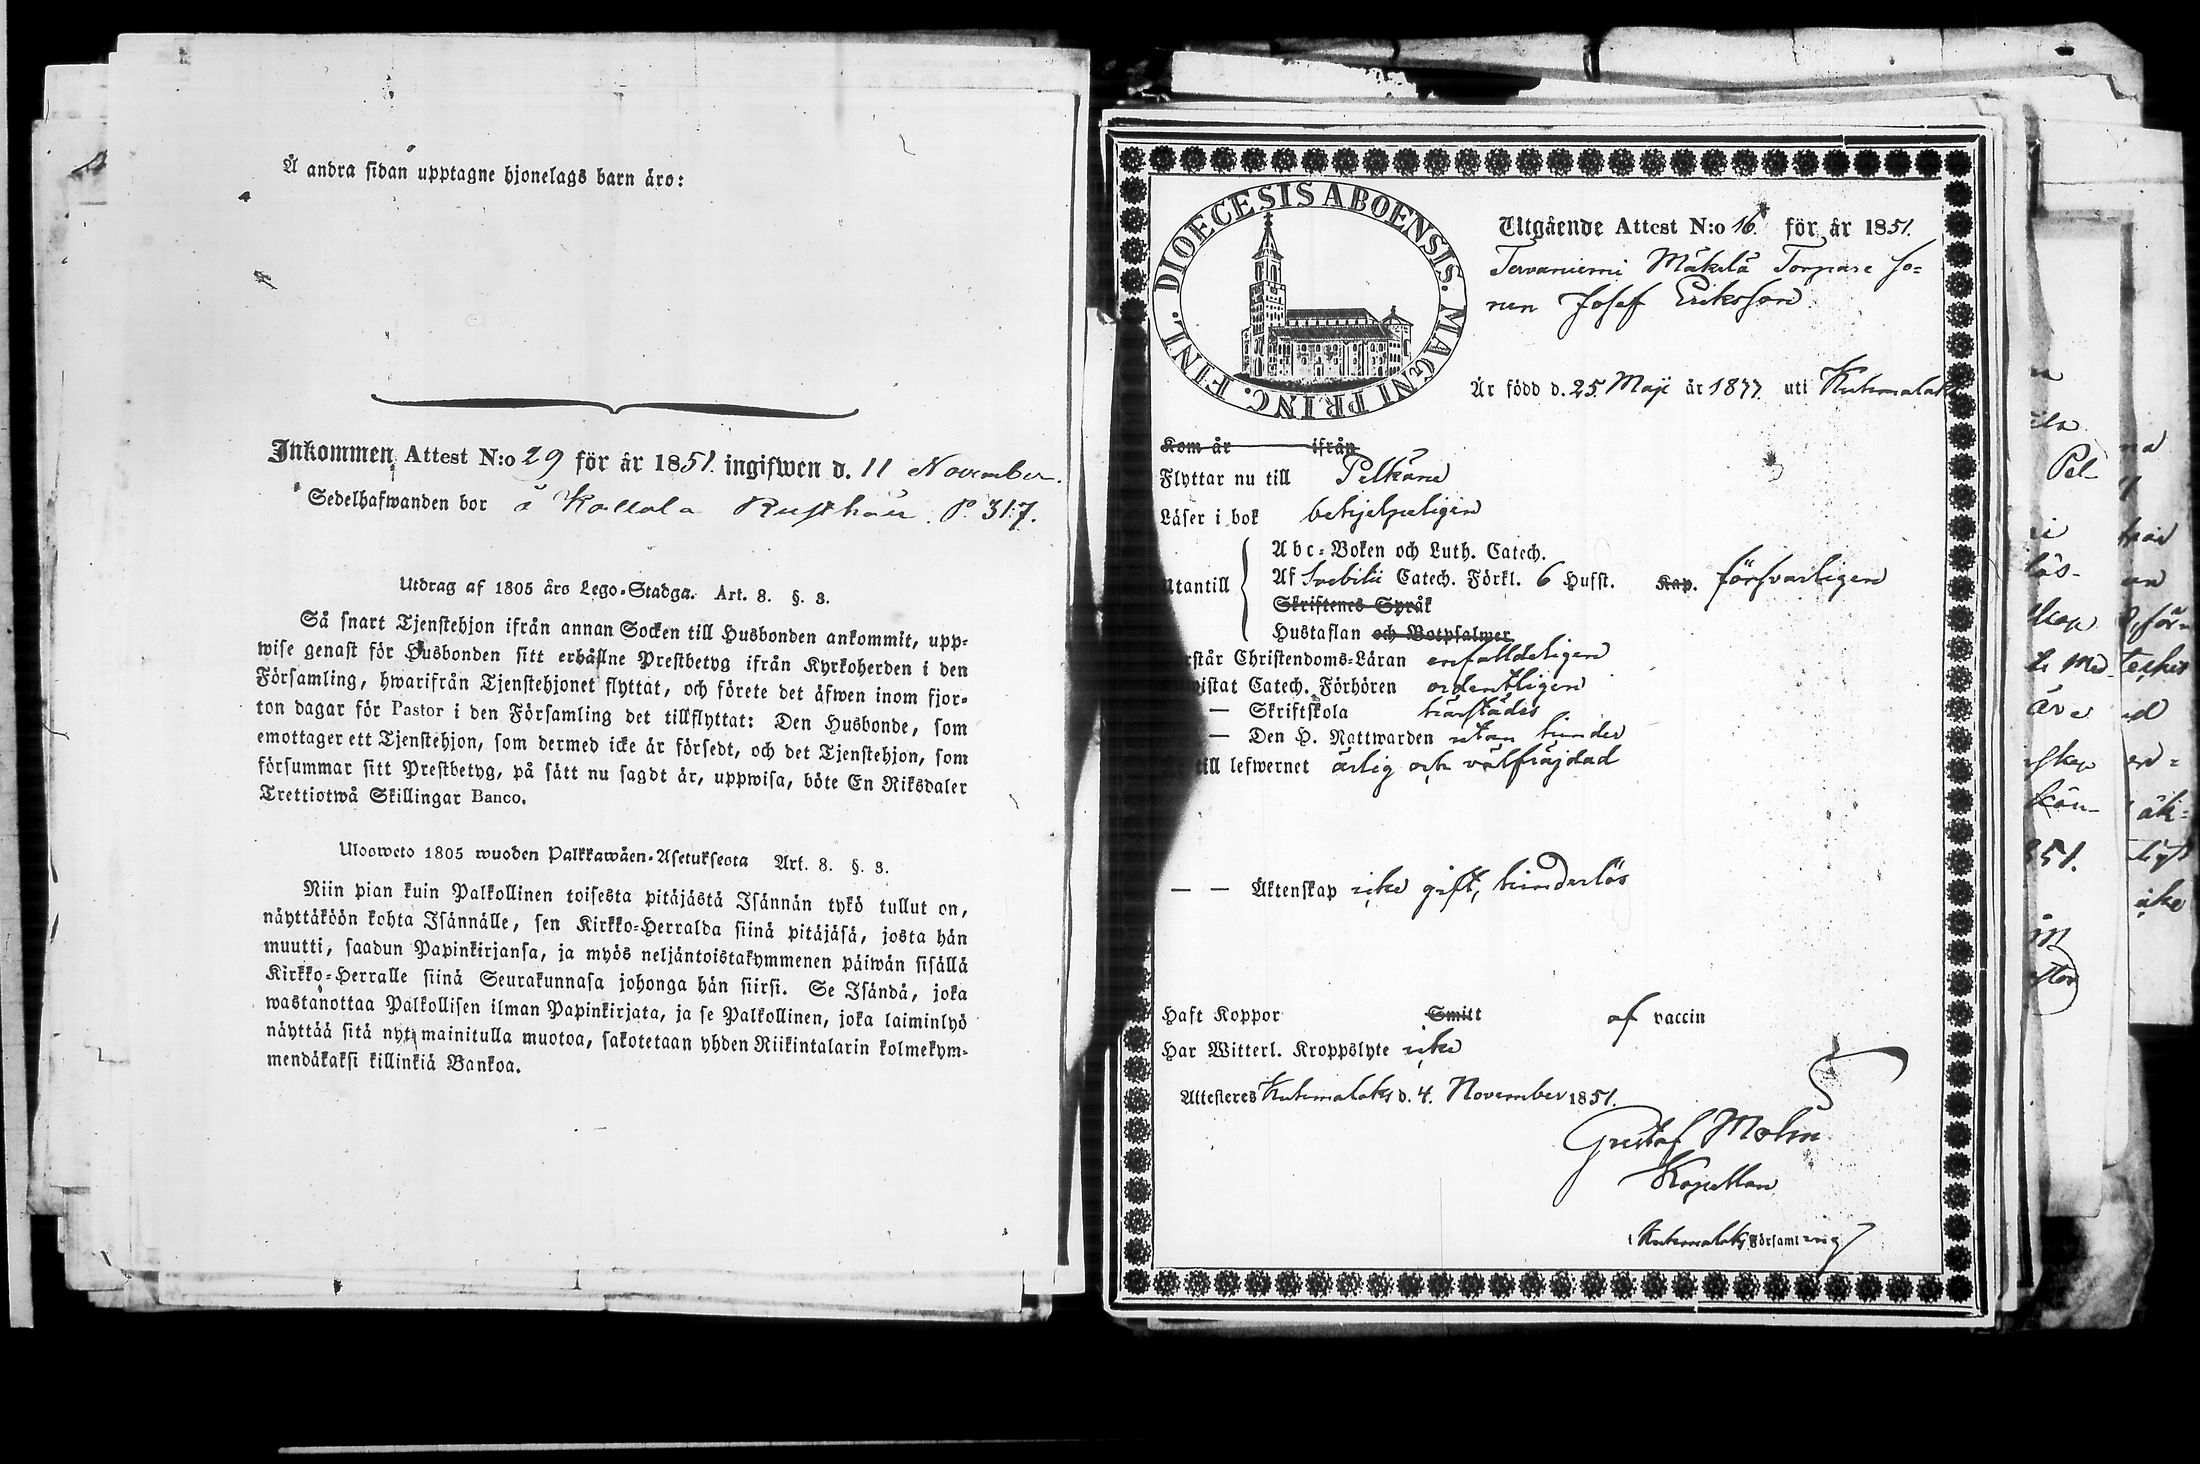 Å andra sidan upptagne hjonelags barn äro:
Inkommen Attest N:o 29 för år 1851. ingifwen d. 11 November.
Sedelhafwanden bor å Kallola Rusthåll. P. 317.
Utdrag af 1805 års Lego-Stadga. Art. 8. §. 3.
Så snart Tjenstehjon ifrån annan Socken till Husbonden ankommit, upp-
wise genast för Husbonden sitt erhållne Prestbetyg ifrån Kyrkoherden i den
Församling, hwarifrån Tjenstehjonet flyttat, och förete det äfwen inom fjor-
ton dagar för Pastor i den Församling det tillflyttat: Den Husbonde, som
emottager ett Tjenstehjon, som dermed icke är försedt, och det Tjenstehjon, som
försummar sitt Prestbetyg, på sätt nu sagdt är, uppwisa, böte En Riksdaler
Trettiotwå Skillingar Banco.
Ulosweto 1805 wuoden Palkkawäen-Asetuksesta Art. 8. §. 3.
Niin pian kuin Palkollinen toisesta pitäjästä Isännän tykö tullut on,
näyttäköön kohta Isännälle, sen Kirkko-Herralda siinä pitäjäsä, josta hän
muutti, saadun Papinkirjansa, ja myös neljäntoistakymmenen päiwän sisällä
Kirkko-Herralle siinä Seurakunnasa johonga hän siirsi. Se Isändä, joka
wastanottaa Palkollisen ilman Papinkirjata, ja se Palkollinen, joka laiminlyö
näyttää sitä nyt mainitulla muotoa, sakotetaan yhden Riikintalarin kolmekym-
mendäkaksi killinkiä Bankoa.
DIOECESIS ABOENSIS. MAGNI PRINC. FINL.
Utgående Attest N:o 16 för år 1851.
Tervaniemi Mäkelä Torpare so-
nen Josef Eriksson
Är född d. 25 Maji år 18 uti Kuhmalaks
Kom år ifrån
Flyttar nu till Pelkäne
Läser i bok behjelpeligen
Abc-Boken och Luth. Catech.
Utantill Af Svebilii Catech. Förkl. 6 Husst. Kap. försvarligen
Skriftenes Språk
Hustaflan och Botpsalmer
rstår Christendoms-Läran enfalldeligen
istat Catech. Förhören ordentligen
— Skriftskola härstädes
— Den H. Nattwarden utan hinder
till lefwernet ärlig och välfräjdad
— — Äktenskap icke gift, hinderlös
Haft Koppor Smitt af vaccin
Har Witterl. Kroppslyte icke
Attesteres Kuhmalaks d. 4. November 1851.
Gustaf Molin
Kapellan
i Kuhmalaks Församling